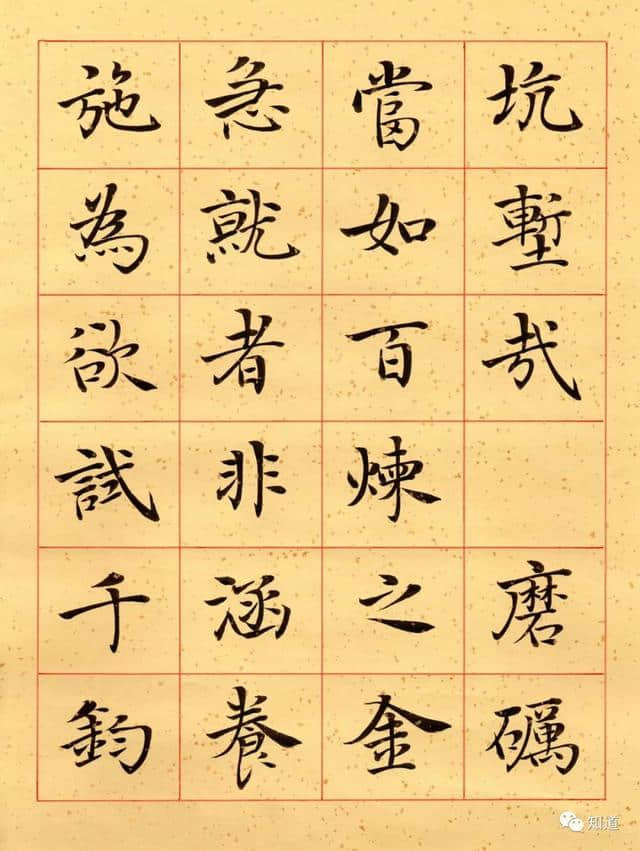 坑塹哉 磨礪
當如百煉之金
急就者非涵養
施為欲試千鈞
知道